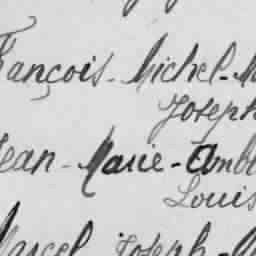 François-Michel-M
Joseph
Jean-Marie-Amb
Louis
Marcel Joseph-